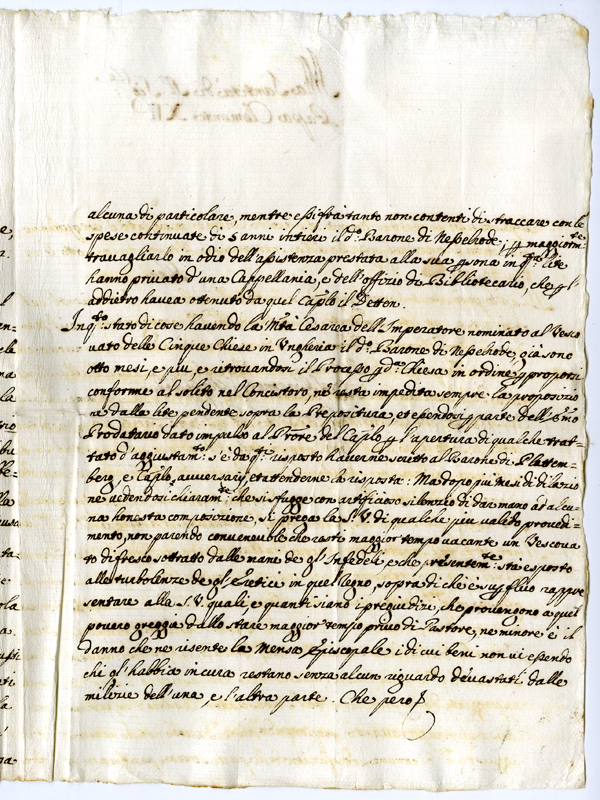 alcuna di particolare, mentre essi frà tanto non contenti di straccare con le
spese continuate di 5 anni intieri il d.º Barone di Nesselrode, p maggiorm.te
travagliarlo in odio dell'assistenza prestata alla sua psona in q.sta lite
hanno privato d'una Cappellania, e dell'offizio di Bibliotecario, che p l'
addietro havea ottenuto da quel Cap.lo il
In q.sto stato di cose havendo la M.tà Cesarea dell'Imperatore nominato al Vesco
vato delle Cinque Chiese in Ungheria il d.º Barone di Nesselrode, già sono
otto mesi, e più, e ritrovandosi il Processo p d.ta Chiesa in ordine p proporsi
conforme al solito nel Concistoro, ne resta impedita sempre la propositio
ne dalla lite pendente sopra la Prepositura, et essendosi p parte dell'
Prodatario dato impulso al Pròre del Cap.lo p l'apertura di qualche trat-
tato d'aggiustam.to s'è da q.sto risposto haverne scritto al Barone di Plettem-
berg, e Cap.lo, avversarij, et attenderne la risposta: Ma dopo più mesi di dilazio
ne accedendosi chiaram.te che si fugge con artificioso silenzio di dar mano ad alcu-
na honesta composizione, si prega la S.V. di qualche più valido provedi-
mento, non parendo convenevole che resti maggior tempo vacante un Vescova
to di fresco sottratto dalle mani de gl'Infedeli, e che presentem.te sta esposto
alle turbolenze de gl'Eretici in quel Regno, sopra di che è supfluo rappre
sentare alla S.V. quali, e quanti siano i pregiudizi, che provengono a quel
povero gregge dallo stare maggior tempo privo di Pastore, ne minore è il
danno che ne risente la Mensa Episcopale i di cui beni non vi essendo
chi gl'habbia in cura restano senza alcun riguardo devastati dalle
milizie dell'una, e l'altra parte. Che però